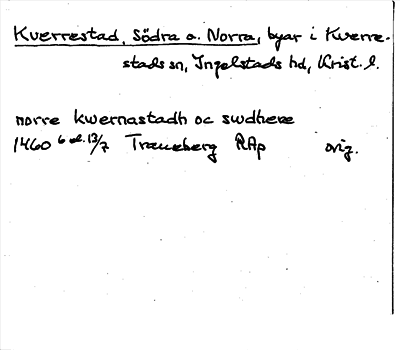 Kverrestad, Södra o. Norra, byar i Kverre-
stads sn, Ingelstads hd, Krist. l.
norre kwernastadh oc swdhere
1460 6 el. 13/7 Traneberg RAp orig.